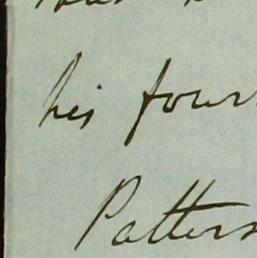 his four
Patters